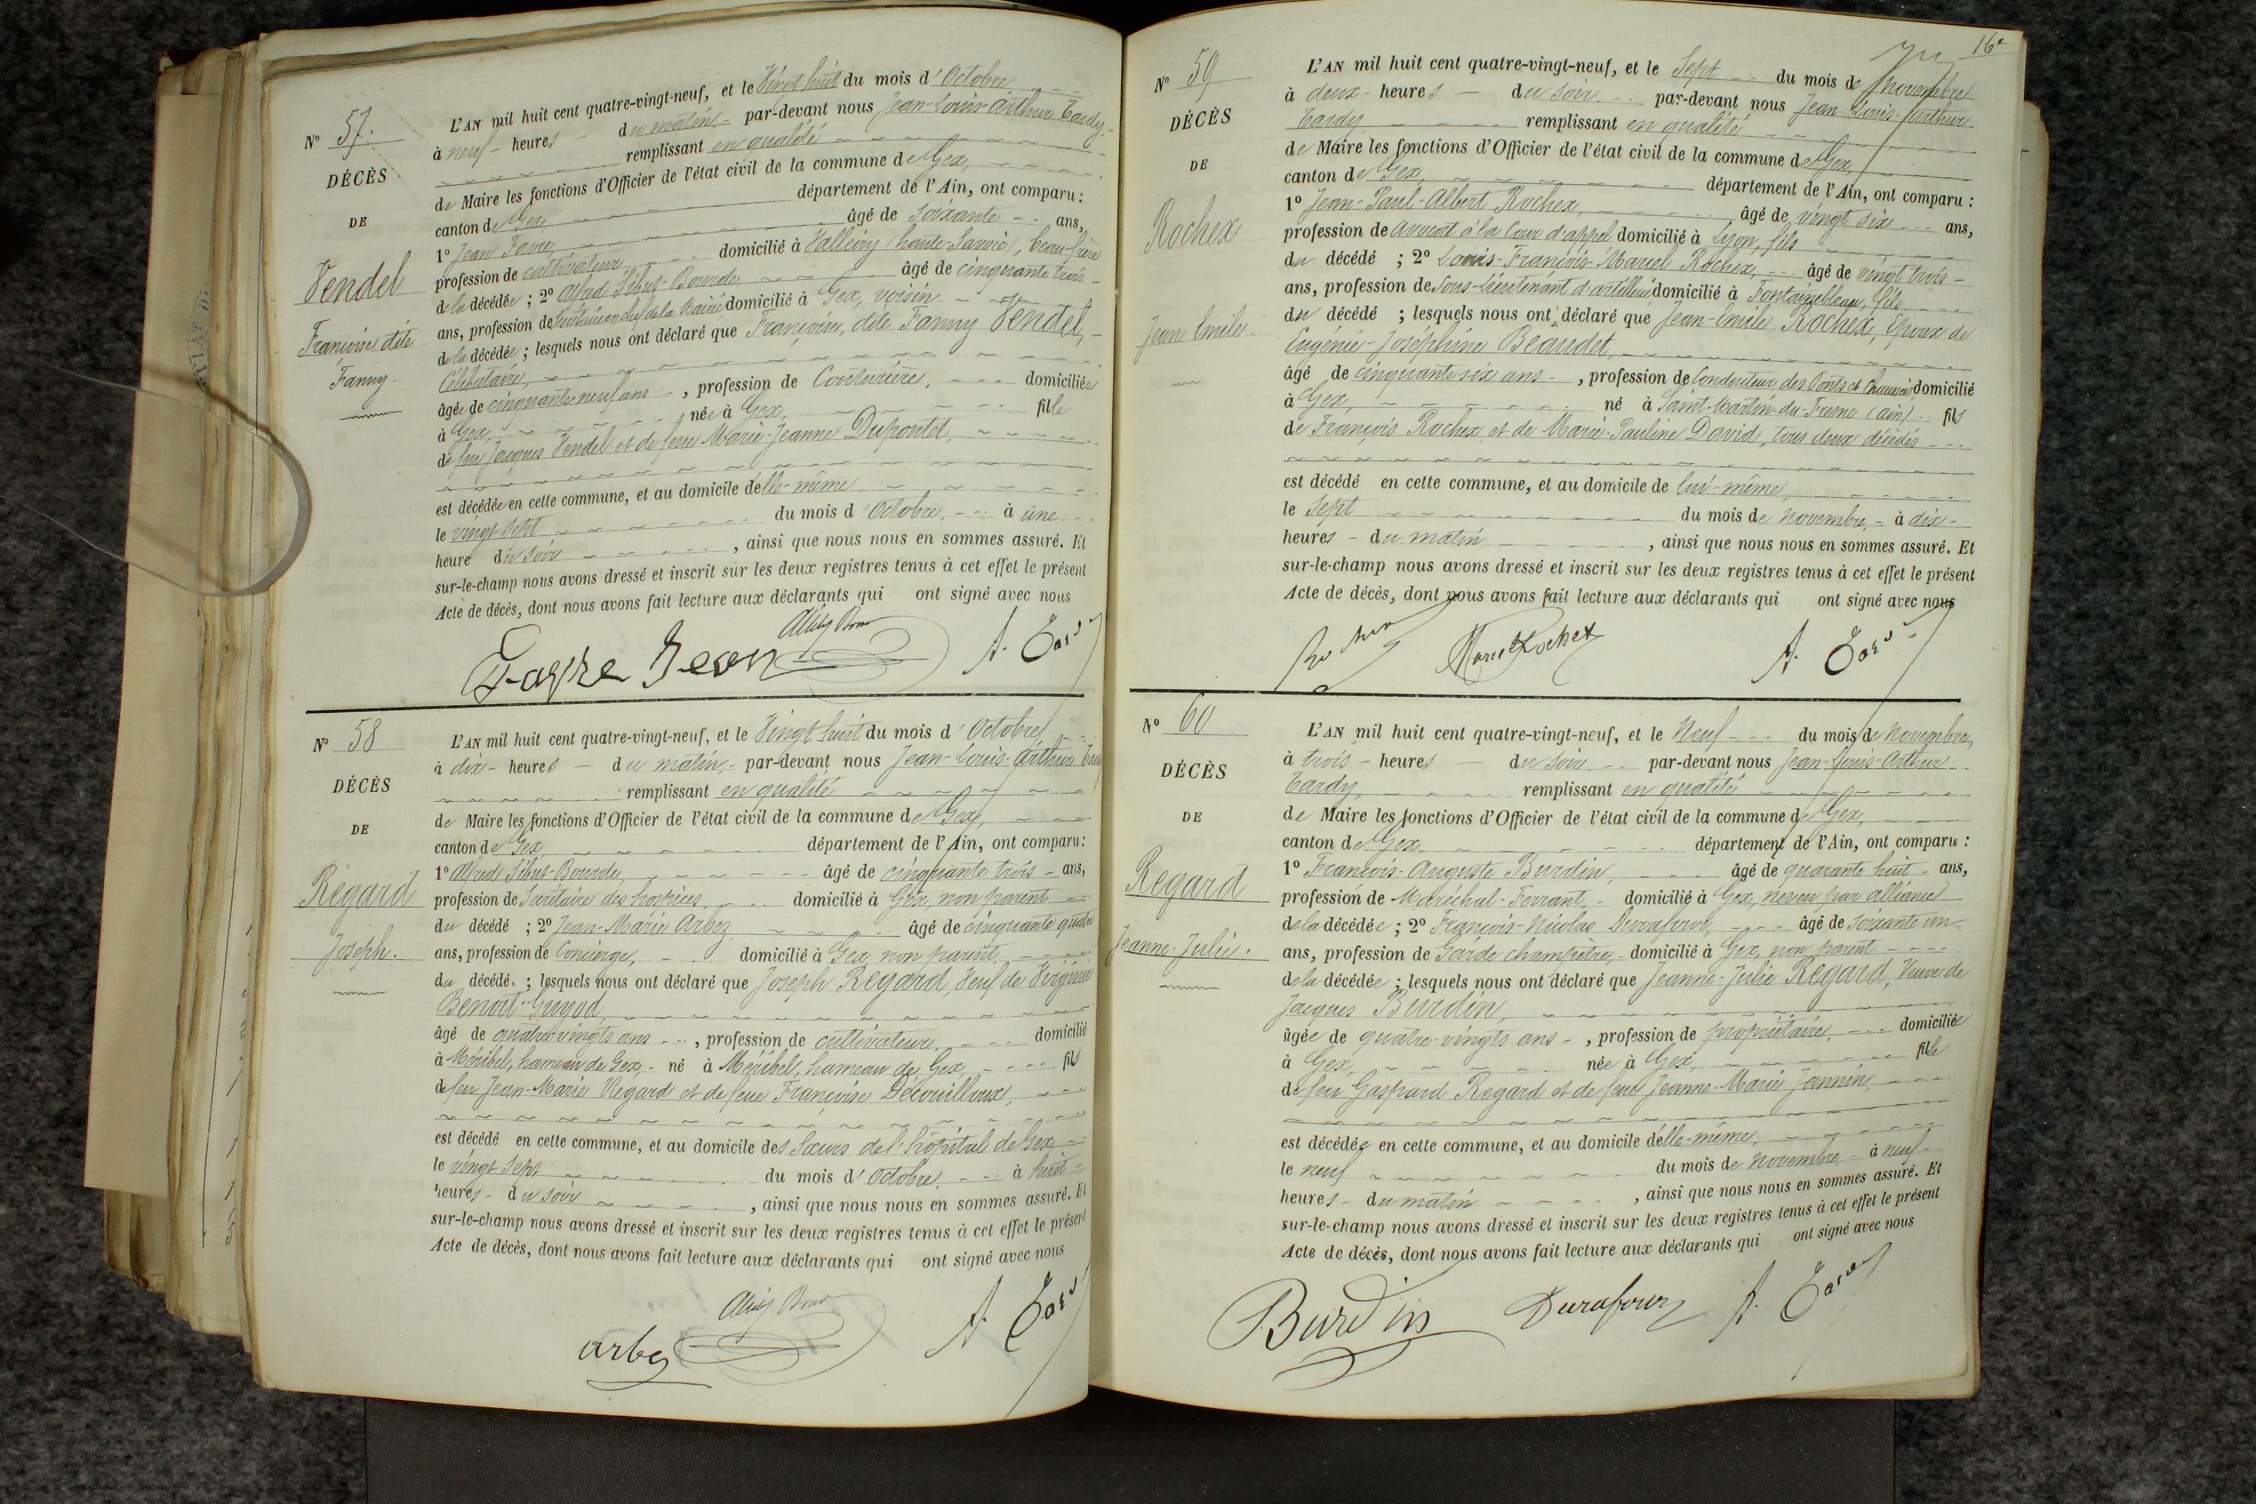 Nº 57.
DÉCÈS
DE
Vendel
Françoise dite
Fanny.
L'AN mil huit cent quatre-vingt-neuf, et le Vingt huit du mois d'Octobre
à neuf heures du matin par-devant nous Jean-Louis-Arthur Tardy
remplissant en qualité
de Maire les fonctions d'Officier de l'état civil de la commune de Gex,
canton de Gex, département de l'Ain, ont comparu :
1º Jean Favre, âgé de soixante ans,
profession de cultivateur domicilié à Valleiry (haute-Savoie), beau-frère
de la décédée ; 2º Alfred Sébut-Bourde âgé de cinquante trois
ans, profession de Secrétaire en chef de la Mairie domicilié à Gex, voisin
de la décédée ; lesquels nous ont déclaré que Françoise, dite Fanny Vendel,
Célibataire,
âgée de cinquante neuf ans, profession de Couturière, domiciliée
à Gex, née à Gex, fille
de feu Jacques Vendel et de feue Marie-Jeanne Dupontet,
est décédée en cette commune, et au domicile d'elle-même
le vingt sept du mois d'Octobre à une
heure du soir, ainsi que nous nous en sommes assuré. Et
sur-le-champ nous avons dressé et inscrit sur les deux registres tenus à cet effet le présent
Acte de décès, dont nous avons fait lecture aux déclarants qui ont signé avec nous
Favre Jean A. Tardy
Nº 58
DÉCÈS
DE
Regard
Joseph.
L'AN mil huit cent quatre-vingt-neuf, et le Vingt huit du mois d'Octobre
à dix heures du matin, par-devant nous Jean-Louis-Arthur Tardy
remplissant en qualité
de Maire les fonctions d'Officier de l'état civil de la commune de Gex,
canton de Gex département de l'Ain, ont comparu :
1º Alfred Sébut-Bourde, âgé de cinquante trois ans,
profession de Secrétaire des hospices, domicilié à Gex, non parent
du décédé ; 2º Jean-Marie Arbez âgé de cinquante quatre
ans, profession de Concierge, domicilié à Gex, non parent
du décédé ; lesquels nous ont déclaré que Joseph Regard, Veuf de Virginie
Benoit-Guyod,
âgé de quatre-vingts ans, profession de cultivateur, domicilié
à Méribel, hameau de Gex, né à Méribel, hameau de Gex, fils
de feu Jean-Marie Regard et de feue Françoise Decouilloux,
est décédé en cette commune, et au domicile des Sœurs de l'hôpital de Gex,
le vingt sept du mois d'Octobre à huit
heures du soir, ainsi que nous nous en sommes assuré. Et
sur-le-champ nous avons dressé et inscrit sur les deux registres tenus à cet effet le présent
Acte de décès, dont nous avons fait lecture aux déclarants qui ont signé avec nous
Arbez A. Tardy
16e
Nº 59
DÉCÈS
DE
Rochex
Jean Emile.
L'AN mil huit cent quatre-vingt-neuf, et le Sept du mois de Novembre
à deux heures du soir par-devant nous Jean-Louis-Arthur
Tardy remplissant en qualité
de Maire les fonctions d'Officier de l'état civil de la commune de Gex,
canton de Gex, département de l'Ain, ont comparu :
1º Jean-Paul-Albert Rochex, âgé de vingt six ans,
profession de Avocat à la Cour d'appel domicilié à Lyon, fils
du décédé ; 2º Louis-François-Marcel Rochex, âgé de vingt trois
ans, profession de Sous-lieutenant d'artillerie domicilié à Fontainebleau, fils
du décédé ; lesquels nous ont déclaré que Jean-Emile Rochex, Epoux de
Eugénie-Joséphine Beaudet,
âgé de cinquante six ans, profession de Conducteur des Ponts et Chaussées domicilié
à Gex, né à Saint-Martin-du-Fresne (Ain) fils
de François Rochex et de Marie-Pauline David, tous deux décédés
est décédé en cette commune, et au domicile de lui-même,
le Sept du mois de Novembre à dix
heures du matin, ainsi que nous nous en sommes assuré. Et
sur-le-champ nous avons dressé et inscrit sur les deux registres tenus à cet effet le présent
Acte de décès, dont nous avons fait lecture aux déclarants qui ont signé avec nous
Rochex Marcel Rochex A. Tardy
Nº 60
DÉCÈS
DE
Regard
Jeanne-Julie.
L'AN mil huit cent quatre-vingt-neuf, et le Neuf du mois de Novembre,
à trois heures du soir par-devant nous Jean-Louis-Arthur
Tardy, remplissant en qualité
de Maire les fonctions d'Officier de l'état civil de la commune de Gex,
canton de Gex département de l'Ain, ont comparu :
1º François-Auguste Burdin, âgé de quarante huit ans,
profession de Maréchal-Ferrant, domicilié à Gex, neveu par alliance
de la décédée ; 2º François-Nicolas Durafour, âgé de soixante un
ans, profession de Garde champêtre, domicilié à Gex, non parent
de la décédée ; lesquels nous ont déclaré que Jeanne-Julie Regard, Veuve de
Jacques Burdin,
âgée de quatre-vingts ans, profession de propriétaire, domiciliée
à Gex, née à Gex, fille
de feu Gaspard Regard et de feue Jeanne-Marie Jannin,
est décédée en cette commune, et au domicile d'elle-même,
le neuf du mois de Novembre à neuf
heures du matin, ainsi que nous nous en sommes assuré. Et
sur-le-champ nous avons dressé et inscrit sur les deux registres tenus à cet effet le présent
Acte de décès, dont nous avons fait lecture aux déclarants qui ont signé avec nous
Burdin Durafour A. Tardy